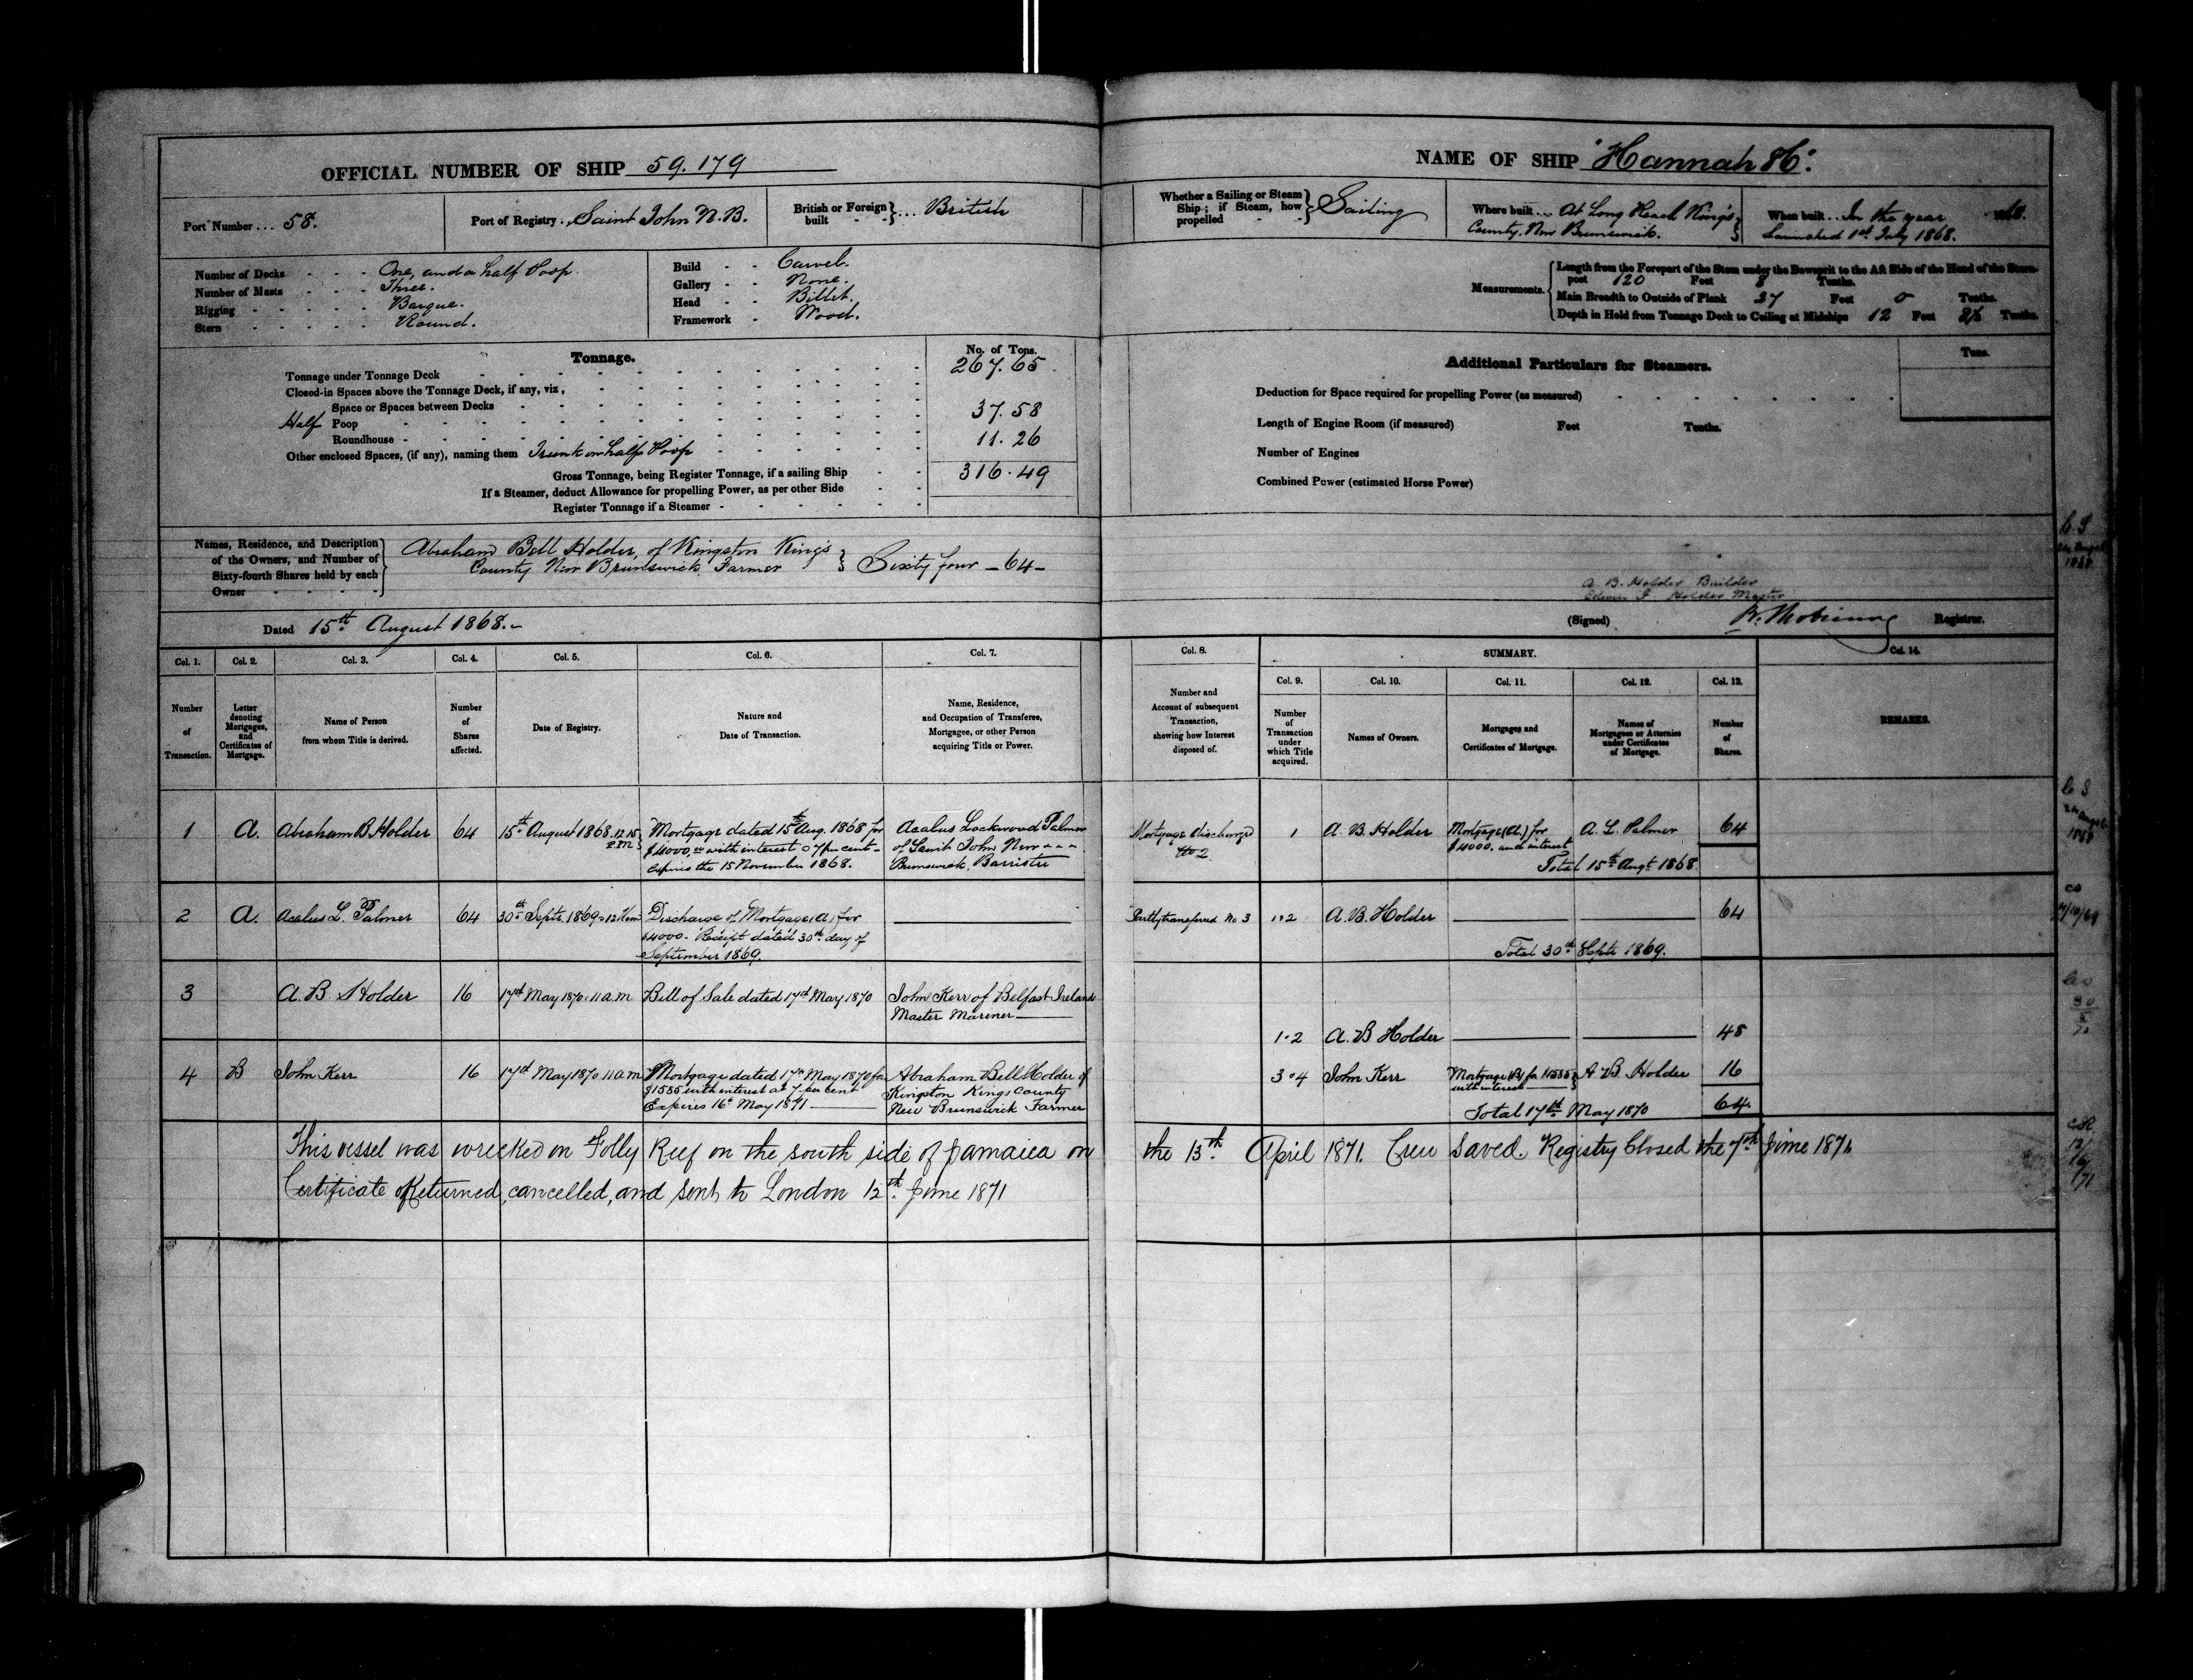 OFFICIAL NUMBER OF SHIP 59.179
Port Number ... 58.
Port of Registry . Saint John N.B.
British or Foreign built } ... British
Number of Decks - - - One, and a half Poop.
Number of Masts - - - Three.
Rigging - - - - - Barque.
Stern - - - - - Round.
Build - - Carvel.
Gallery - - None.
Head - - Billet.
Framework - Wood.
Tonnage.
No. of Tons.
Tonnage under Tonnage Deck 267.65
Closed-in Spaces above the Tonnage Deck, if any, viz,
Space or Spaces between Decks
Half Poop 37.58
Roundhouse
Other enclosed Spaces, (if any), naming them Trunk on half Poop 11.26
Gross Tonnage, being Register Tonnage, if a sailing Ship 316.49
If a Steamer, deduct Allowance for propelling Power, as per other Side
Register Tonnage if a Steamer
Names, Residence, and Description of the Owners, and Number of Sixty-fourth Shares held by each Owner
Abraham Bell Holder, of Kingston King's
County New Brunswick, Farmer } Sixty four - 64 -
Dated 15th August 1868.-
NAME OF SHIP "Hannah H".
Whether a Sailing or Steam Ship; if Steam, how propelled } Sailing
Where built ... At Long Reach King's
County, New Brunswick.
When built .. In the year 1868.
Launched 1st July 1868.
Measurements.
Length from the Forepart of the Stem under the Bowsprit to the Aft Side of the Head of the Stern-
post 120 Feet 8 Tenths.
Main Breadth to Outside of Plank 27 Feet 0 Tenths.
Depth in Hold from Tonnage Deck to Ceiling at Midships 12 Feet Tenths.
Additional Particulars for Steamers.
Tons.
Deduction for Space required for propelling Power (as measured)
Length of Engine Room (if measured) Feet Tenths.
Number of Engines
Combined Power (estimated Horse Power)
A. B. Holder Builder
Holder Master
(Signed) Registrar.
Col. 1. Col. 2. Col. 3. Col. 4. Col. 5. Col. 6. Col. 7.
Number of Transaction.
Letter denoting Mortgages, and Certificates of Mortgage.
Name of Person from whom Title is derived.
Number of Shares affected.
Date of Registry.
Nature and Date of Transaction.
Name, Residence, and Occupation of Transferee, Mortgagee, or other Person acquiring Title or Power.
Col. 8. SUMMARY. Col. 14.
Col. 9. Col. 10. Col. 11. Col. 12. Col. 13.
Number and Account of subsequent Transaction, showing how Interest disposed of.
Number of Transaction under which Title acquired.
Names of Owners.
Mortgages and Certificates of Mortgage.
Names of Mortgagees or Attornies under Certificates of Mortgage.
Number of Shares.
REMARKS.
1 A. Abraham B. Holder 64 15th August 1868. 12.15 P.M.
Mortgage dated 15th Aug. 1868 for
$4000, with interest 7 per cent -
Expires the 15 November 1868.
Acalus Lockwood Palmer
of Saint John New
Brunswick, Barrister
Mortgage discharged No 2
1 A. B. Holder Mortgage (A.) for $4000. and interest A. L. Palmer 64
Total 15th Augt. 1868
2 A. Acalus L. Palmer 64 30th Septr. 1869
Discharge of Mortgage (A) for
$4000. Receipt dated 30th day of
September 1869.
Partly transferred No 3 1.2 A. B. Holder 64
Total 30th Septr 1869.
3 A. B Holder 16 17th May 1870. 11 a.m Bill of Sale dated 17th May 1870
John Kerr of Belfast Ireland
Master Mariner
1.2 A. B Holder 48
4 B John Kerr 16 17th May 1870 11 a.m
Mortgage dated 17th May 1870 for
$1555 with interest at 7 per cent
Expires 16th May 1871
Abraham Bell Holder of
Kingston Kings County
New Brunswick Farmer
3.4 John Kerr Mortgage (B) for $1555 with interest A. B. Holder 16
Total 17th May 1870 64
This vessel was wrecked on Folly Reef on the south side of Jamaica on the 13th April 1871. Crew Saved. Registry Closed the 7th June 1871
Certificate of Returned, cancelled, and sent to London 12th June 1871